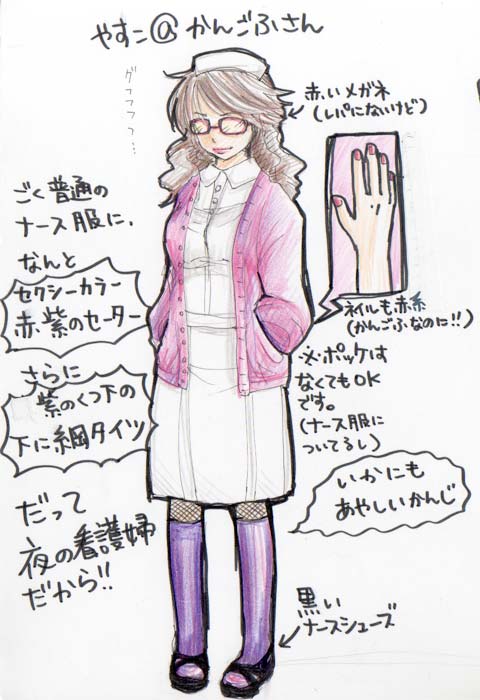 やすこ@かんごふさん
グフフフフ…
赤いメガネ
(レパにないけど)
ごく普通の
ナース服に、
なんと
セクシーカラー
赤紫のセーター
ネイルも赤系
(かんごふなのに!!)
※ポッケは
なくてもOK
です。
(ナース服に
ついてるし)
さらに
紫のくつ下の
下に網タイツ
いかにも
あやしいかんじ
だって
夜の看護婦
だから!!
黒い
ナースシューズ